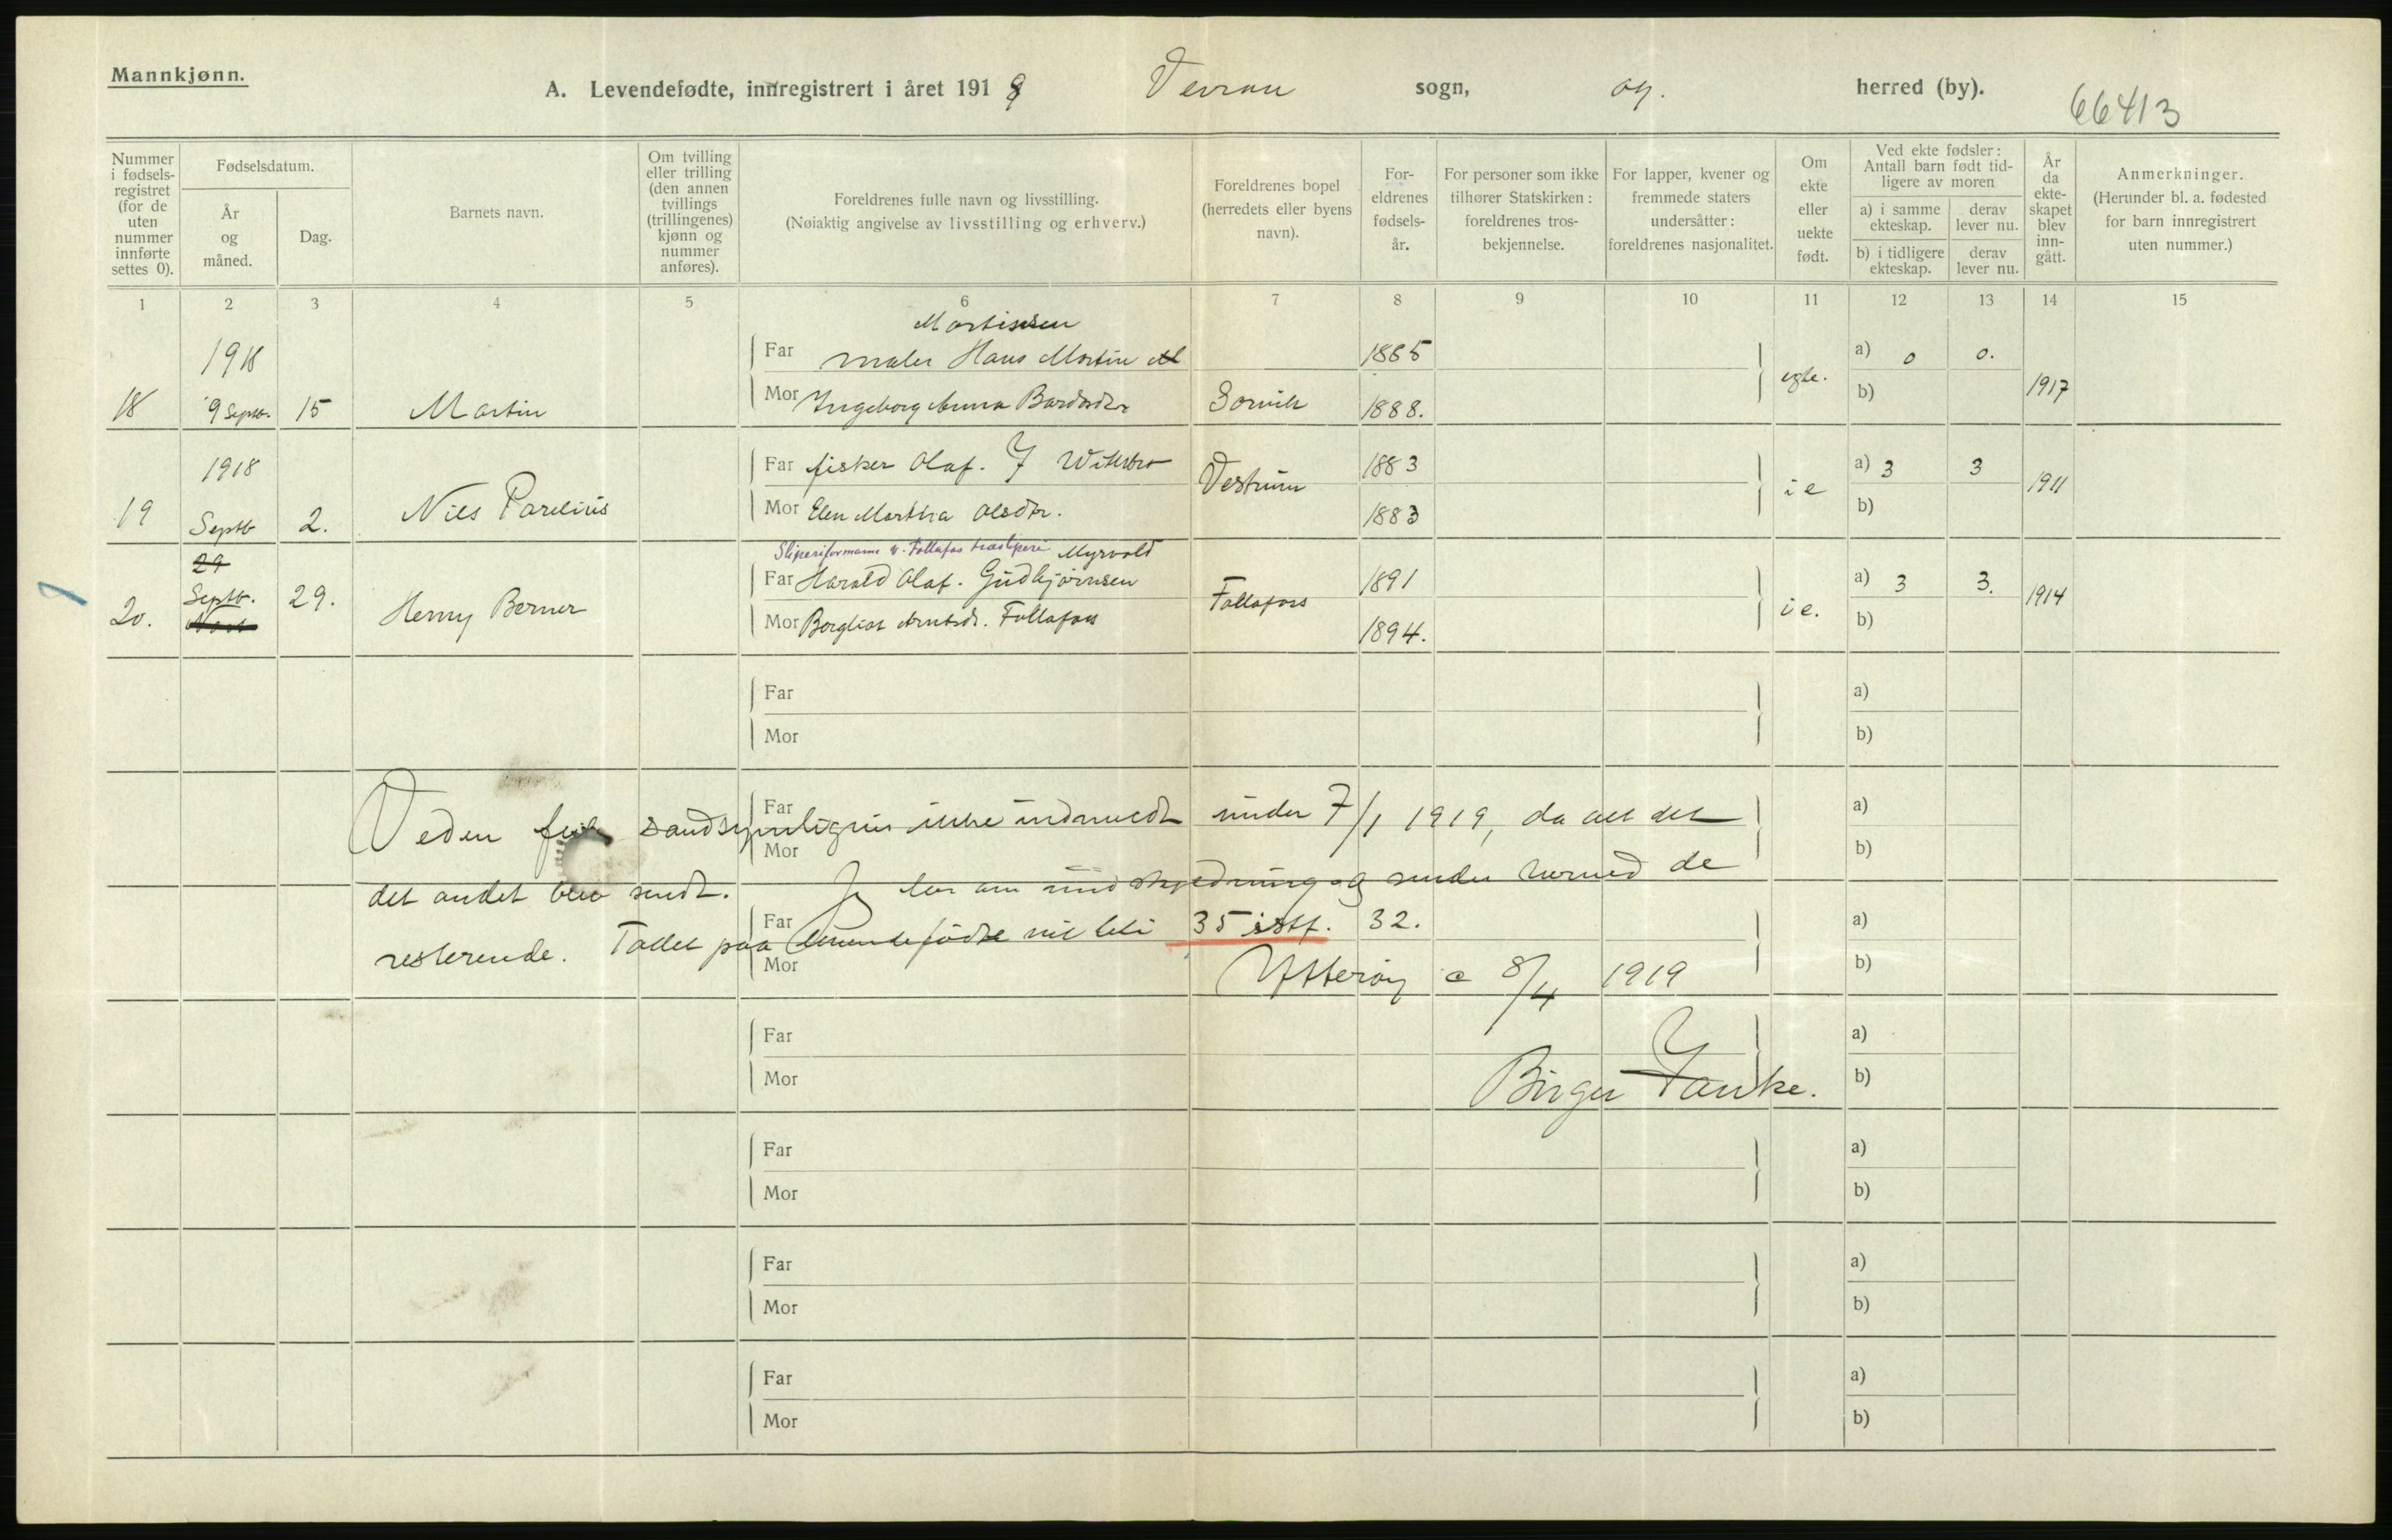 Mannkjønn.
A. Levendefødte, innregistrert i året 1918 Verran sogn, og. herred (by).
66413
Nummer i fødselsregistret (for de uten nummer innførte settes 0).
Fødselsdatum.
År og måned.
Dag.
Barnets navn.
Om tvilling eller trilling (den annen tvillings (trillingenes) kjønn og nummer anføres).
Foreldrenes fulle navn og livsstilling.
(Nøiaktig angivelse av livsstilling og erhverv.)
Foreldrenes bopel (herredets eller byens navn).
For-eldrenes fødsels-år.
For personer som ikke tilhører Statskirken: foreldrenes tros-bekjennelse.
For lapper, kvener og fremmede staters undersåtter: foreldrenes nasjonalitet.
Om ekte eller uekte født.
Ved ekte fødsler: Antall barn født tid-ligere av moren
a) i samme ekteskap.
derav lever nu.
b) i tidligere ekteskap.
derav lever nu.
År da ekte-skapet blev inn-gått.
Anmerkninger.
(Herunder bl. a. fødested for barn innregistrert uten nummer.)
1 2 3 4 5 6 7 8 9 10 11 12 13 14 15
Martinsen
1918 Far maler Hans Martin 1885 a) 0 0.
18 9 Septb. 15 Martin Mor Ingeborg Anna Bardosdtr Sorvik 1888. egte. b) 1917
1918 Far fisker Olaf. J 1883 a) 3 3
19 Septb 2. Nils Parelius Mor Elen Martha Olsdtr. Vestrum 1883 i e b) 1911
Sliperiformann v. Follafos træsliperi Myrvold
29
Septb. 29. Far Harald Olaf. Gudbjørnsen 1891 a) 3 3.
20. Henry Berner Mor Borgliot Arntsdr. Follafoss Follafoss 1894. i e. b) 1914
Far a)
Mor b)
Far a)
Veden feil sandsynligvis ikke indmeldt under 7/1 1919, da alt det
Mor b)
det andet blev sendt. Jeg ber om undskyldning og sender herved de
Far a)
resterende. Tallet paa levendefødte vil bli 35 istf. 32.
Mor b)
Ytterøy d 8/4 1919
Far a)
Birger Tanke.
Mor b)
Far a)
Mor b)
Far a)
Mor b)
Far a)
Mor b)